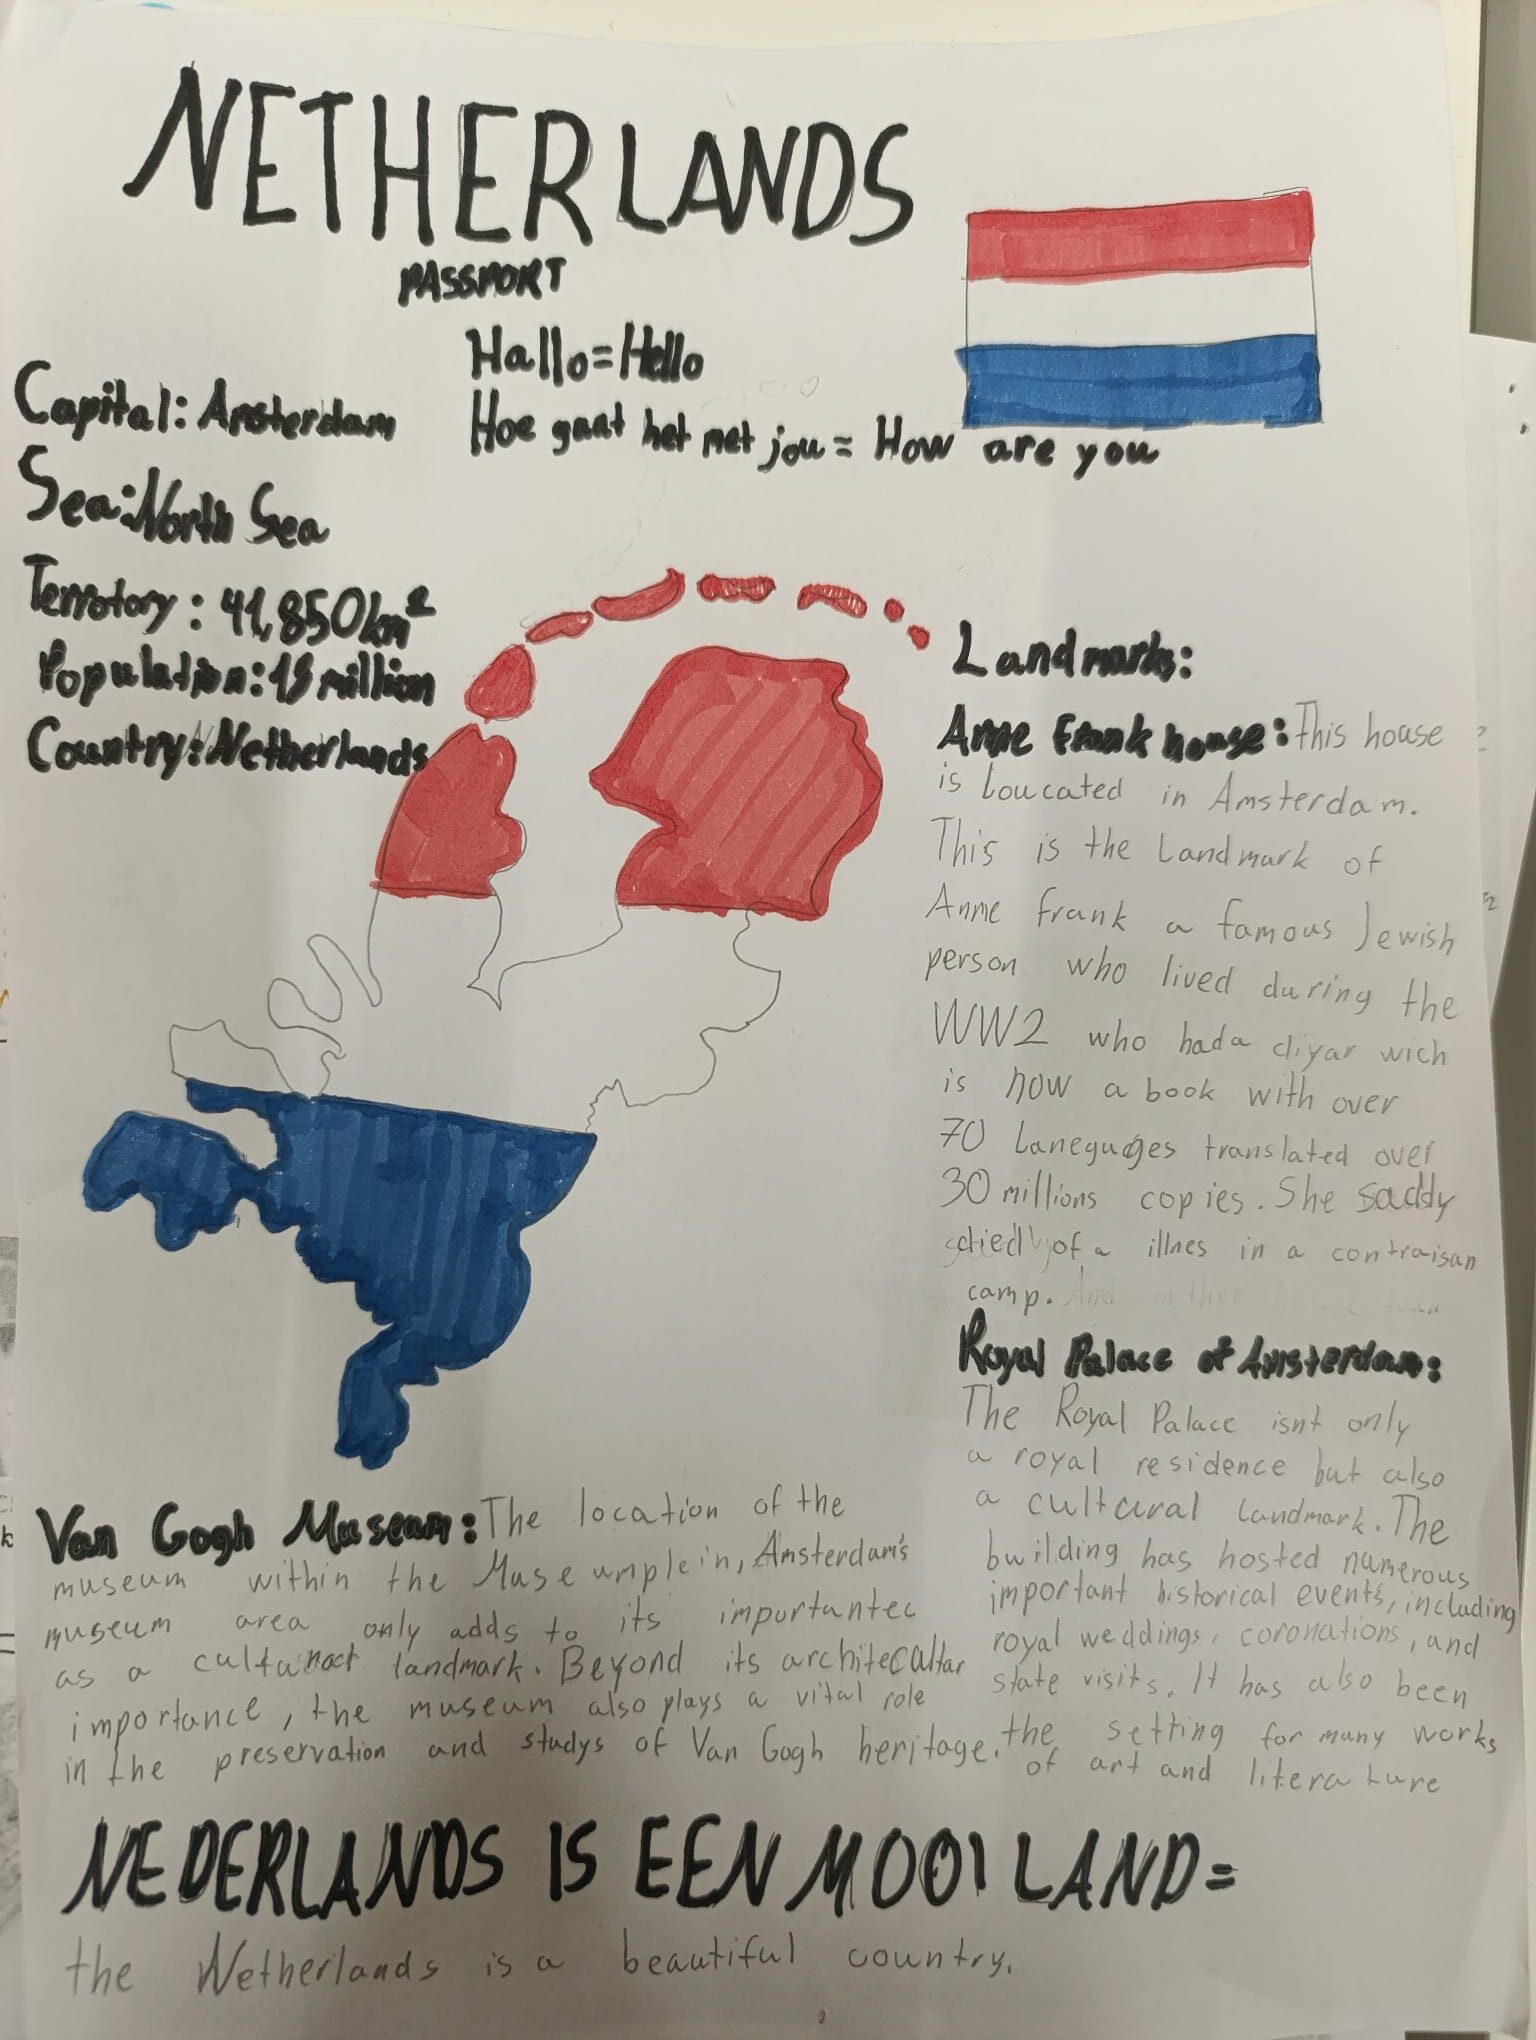 NETHERLANDS
PASSPORT
Hallo=Hello
Hoe gaat het met jou = How are you
Capital: Amsterdam
Sea:North Sea
Terrotory: 41,850km²
Population:18 million
Country:Netherlands
Landmarks:
Anne Frank house: This house
is Loucated in Amsterdam.
This is the Landmark of
Anne Frank a famous Jewish
person who lived during the
WW2 who had a diyar wich
is now a book with over
70 Laneguages translated over
30 millions copies. She saddy
died of a illnes in a contraisan
camp.
Royal Palace of Amsterdam:
The Royal Palace isnt only
a royal residence but also
a cultural Landmark. The
building has hosted numerous
important historical events, including
royal weddings, coronations, and
state visits. It has also been
the setting for many works
of art and literature
Van Gogh Museam: The location of the
museum within the Museumplein, Amsterdam's
museum area only adds to its importantec
as a landmark. Beyond its
importance, the museum also plays a vital role
in the preservation and studys of Van Gogh heritage.
NEDERLANDS IS EEN MOOI LAND=
the Netherlands is a beautiful country.